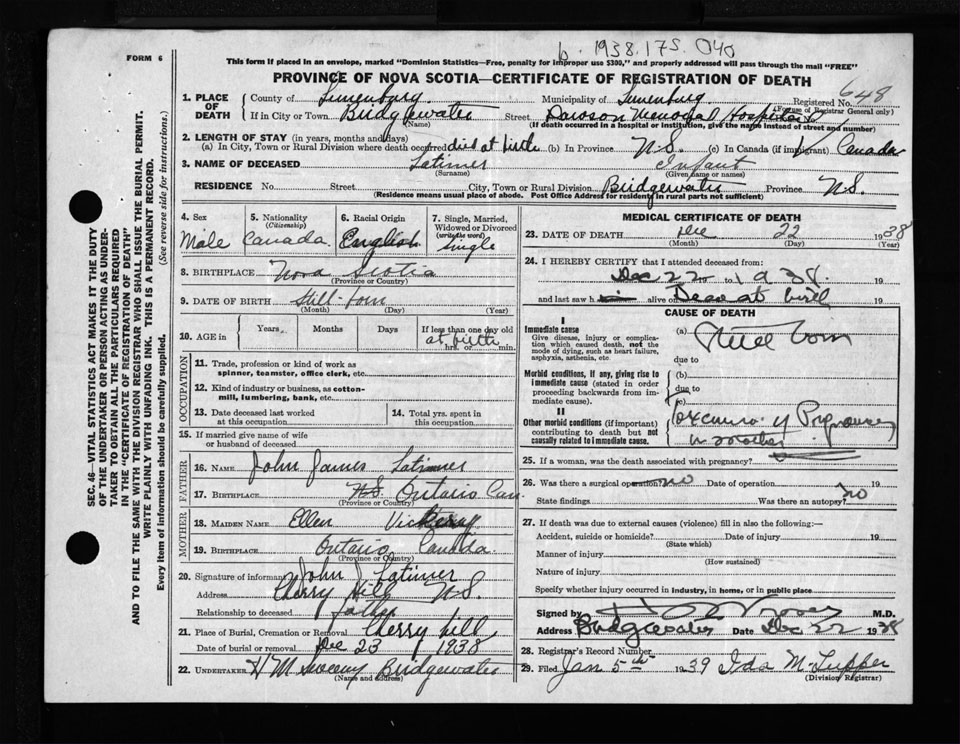 b. 1938. 175. 040
FORM 6
This form if placed in an envelope, marked "Dominion Statistics—Free, penalty for improper use $300," and properly addressed will pass through the mail "FREE"
PROVINCE OF NOVA SCOTIA—CERTIFICATE OF REGISTRATION OF DEATH
1. PLACE OF DEATH County of Lunenburg Municipality of Lunenburg Registered No. 648
(For use of Registrar General only)
If in City or Town Bridgewater Street Dawson Memorial Hospital
(Name) (If death occurred in a hospital or institution, give the name instead of street and number)
2. LENGTH OF STAY (in years, months and days)
(a) In City, Town or Rural Division where death occurred died at birth (b) In Province N.S. (c) In Canada (if immigrant) Canada
3. NAME OF DECEASED Latimer Infant
(Surname) (Given name or names)
RESIDENCE No. Street City, Town or Rural Division Bridgewater Province N.S.
(Residence means usual place of abode. Post Office Address for residents in rural parts not sufficient)
SEC. 46—VITAL STATISTICS ACT MAKES IT THE DUTY
OF THE UNDERTAKER OR PERSON ACTING AS UNDER-
TAKER TO OBTAIN ALL THE PARTICULARS REQUIRED
IN THE "CERTIFICATE OF REGISTRATION OF DEATH"
AND TO FILE THE SAME WITH THE DIVISION REGISTRAR WHO SHALL ISSUE THE BURIAL PERMIT.
WRITE PLAINLY WITH UNFADING INK. THIS IS A PERMANENT RECORD.
Every item of information should be carefully supplied. (See reverse side for instructions).
4. Sex Male
5. Nationality (Citizenship) Canada
6. Racial Origin English
7. Single, Married, Widowed or Divorced (write the word) Single
8. BIRTHPLACE Nova Scotia
(Province or Country)
9. DATE OF BIRTH Still-born
(Month) (Day) (Year)
10. AGE in Years Months Days If less than one day old at birth hrs. or min.
OCCUPATION
11. Trade, profession or kind of work as spinner, teamster, office clerk, etc.
12. Kind of industry or business, as cotton-mill, lumbering, bank, etc.
13. Date deceased last worked at this occupation 14. Total yrs. spent in this occupation
15. If married give name of wife or husband of deceased
FATHER
16. NAME John James Latimer
17. BIRTHPLACE N.S. Ontario Can
(Province or Country)
MOTHER
18. MAIDEN NAME Ellen
19. BIRTHPLACE Ontario Canada
(Province or Country)
20. Signature of informant John J Latimer
Address Cherry Hill N.S.
Relationship to deceased father
21. Place of Burial, Cremation or Removal Cherry hill
Date of burial or removal Dec 23 1938
22. UNDERTAKER H M Sweeny Bridgewater
(Name and address)
MEDICAL CERTIFICATE OF DEATH
23. DATE OF DEATH Dec 22 1938
(Month) (Day) (Year)
24. I HEREBY CERTIFY that I attended deceased from:
Dec 22 to 1938. 19
and last saw h im alive on Dead at birth 19
CAUSE OF DEATH
I
Immediate cause (a) Still born
Give disease, injury or complication which caused death, not the mode of dying, such as heart failure, asphyxia, asthenia, etc.
due to
Morbid conditions, if any, giving rise to immediate cause (stated in order proceeding backwards from immediate cause).
(b)
due to
(c)
II
Other morbid conditions (if important) contributing to death but not causally related to immediate cause.
of Pregnancy
in mother
25. If a woman, was the death associated with pregnancy?
26. Was there a surgical operation no Date of operation 19
State findings Was there an autopsy? no
27. If death was due to external causes (violence) fill in also the following:—
Accident, suicide or homicide? Date of injury 19
(State which)
Manner of injury
(How sustained)
Nature of injury
Specify whether injury occurred in industry, in home, or in public place
Signed by M.D.
Address Bridgewater Date Dec 22 1938
28. Registrar's Record Number
29. Filed Jan 5th 1939 Ida M. Tupper
(Division Registrar)